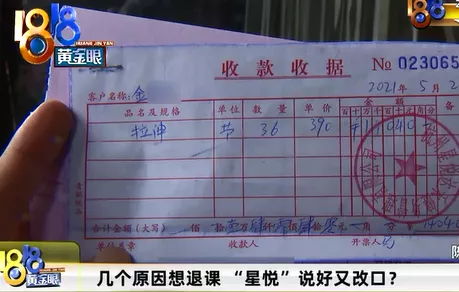 1818
黄金眼
HUANG JIN YAN
收款收据 No 023065
2021年5月2
客户名称：金
品名及规格 单位 数量 单价 金额
百 十 万 千 百 十 元 角 分
拉伸 节 36 390 ¥ 1 4 0 4 0
合计金额（大写） 佰 拾壹万肆仟零佰肆拾零元 角 分 ¥14040
单位盖章 收款人 开票人
1818
黄金眼
几个原因想退课 “星悦”说好又改口？